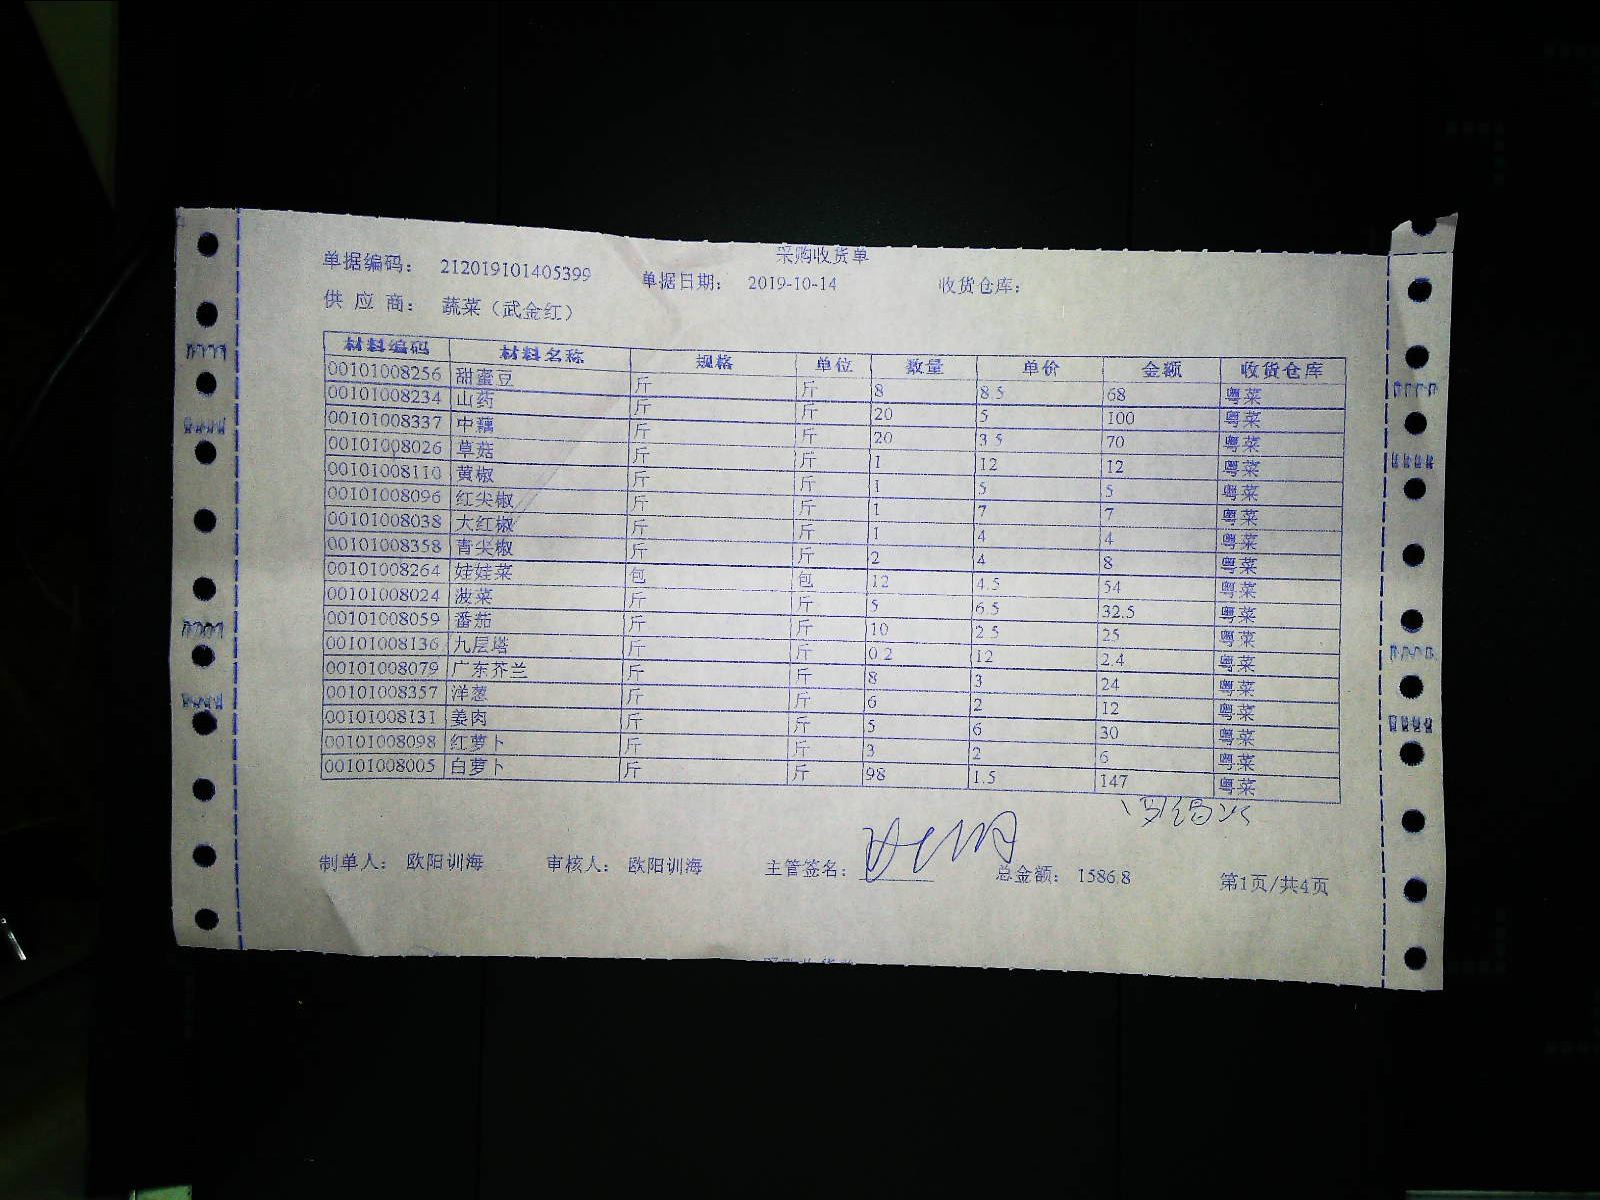 采购收货单
单据编码： 212019101405399 单据日期： 2019-10-14 收货仓库：
供 应 商： 蔬菜（武金红）
材料编码 材料名称 规格 单位 数量 单价 金额 收货仓库
00101008256 甜蜜豆 斤 斤 8 8.5 68 粤菜
00101008234 山药 斤 斤 20 5 100 粤菜
00101008337 中藕 斤 斤 20 3.5 70 粤菜
00101008026 草菇 斤 斤 1 12 12 粤菜
00101008110 黄椒 斤 斤 1 5 5 粤菜
00101008096 红尖椒 斤 斤 1 7 7 粤菜
00101008038 大红椒 斤 斤 1 4 4 粤菜
00101008358 青尖椒 斤 斤 2 4 8 粤菜
00101008264 娃娃菜 包 包 12 4.5 54 粤菜
00101008024 菠菜 斤 斤 5 6.5 32.5 粤菜
00101008059 番茄 斤 斤 10 2.5 25 粤菜
00101008136 九层塔 斤 斤 0.2 12 2.4 粤菜
00101008079 广东芥兰 斤 斤 8 3 24 粤菜
00101008357 洋葱 斤 斤 6 2 12 粤菜
00101008131 姜肉 斤 斤 5 6 30 粤菜
00101008098 红萝卜 斤 斤 3 2 6 粤菜
00101008005 白萝卜 斤 斤 98 1.5 147 粤菜
制单人： 欧阳训海 审核人： 欧阳训海 主管签名： 总金额： 1586.8 第1页/共4页